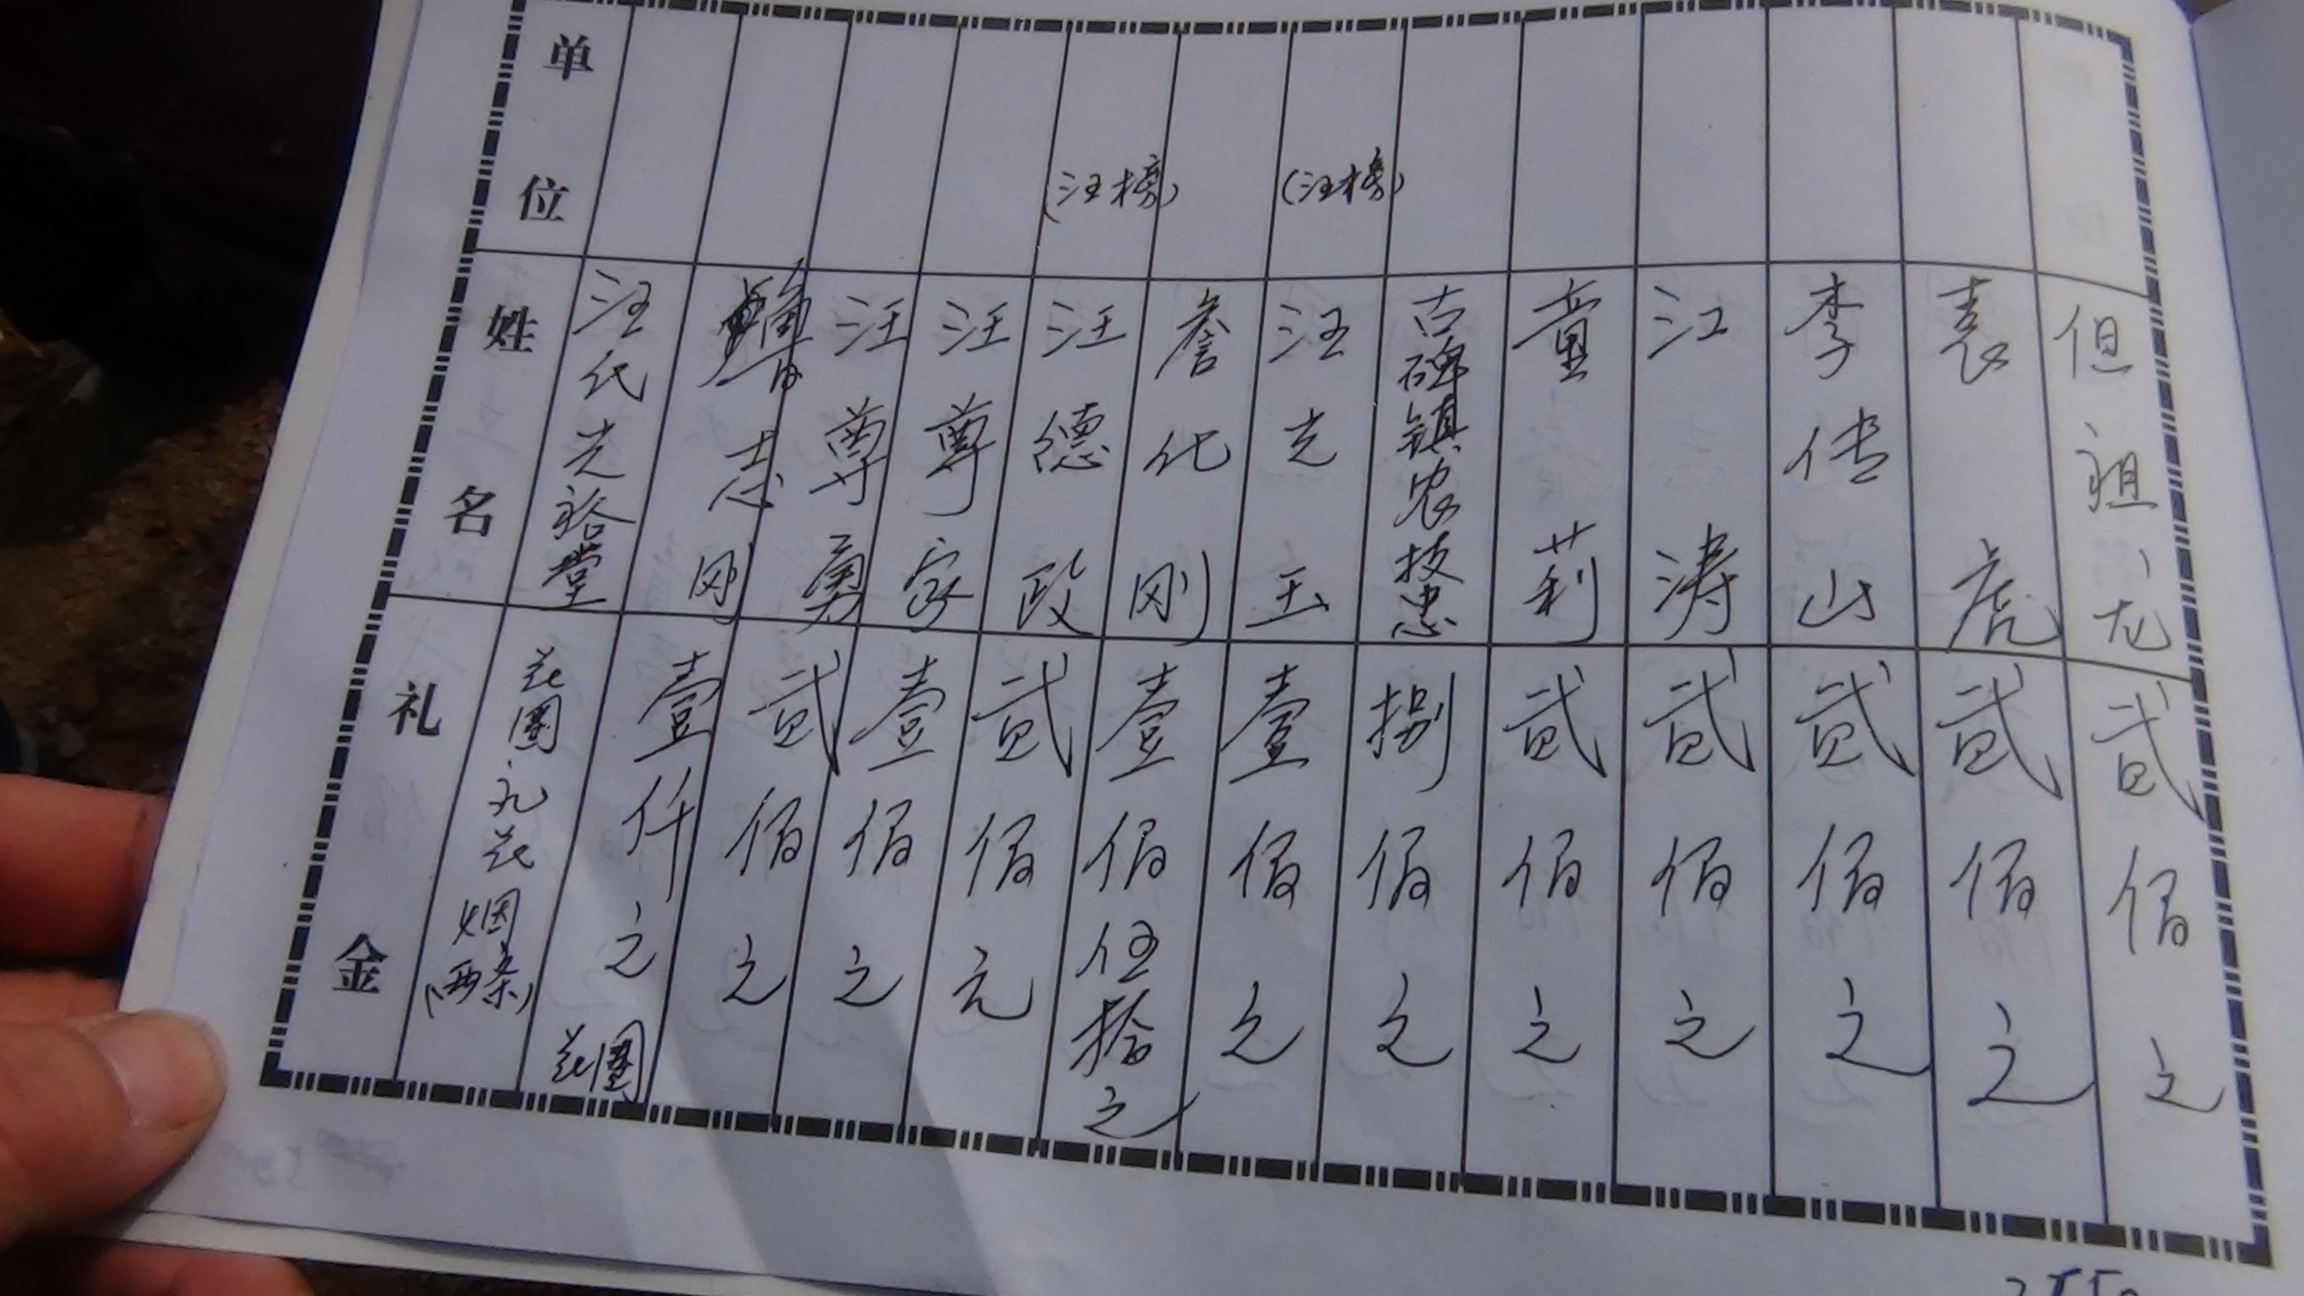 单位
姓名
礼金
汪氏光裕堂
花圈礼花
烟
(两条)
志刚
壹仟元
花圈
汪尊勇
贰佰元
汪尊家
壹佰元
(汪榜)
汪德政
贰佰元
詹化刚
壹佰伍拾元
(汪榜)
汪志玉
壹佰元
古碑镇农技忠
捌佰元
童莉
贰佰元
江涛
贰佰元
李传山
贰佰元
袁虎
贰佰元
但祖龙
贰佰元